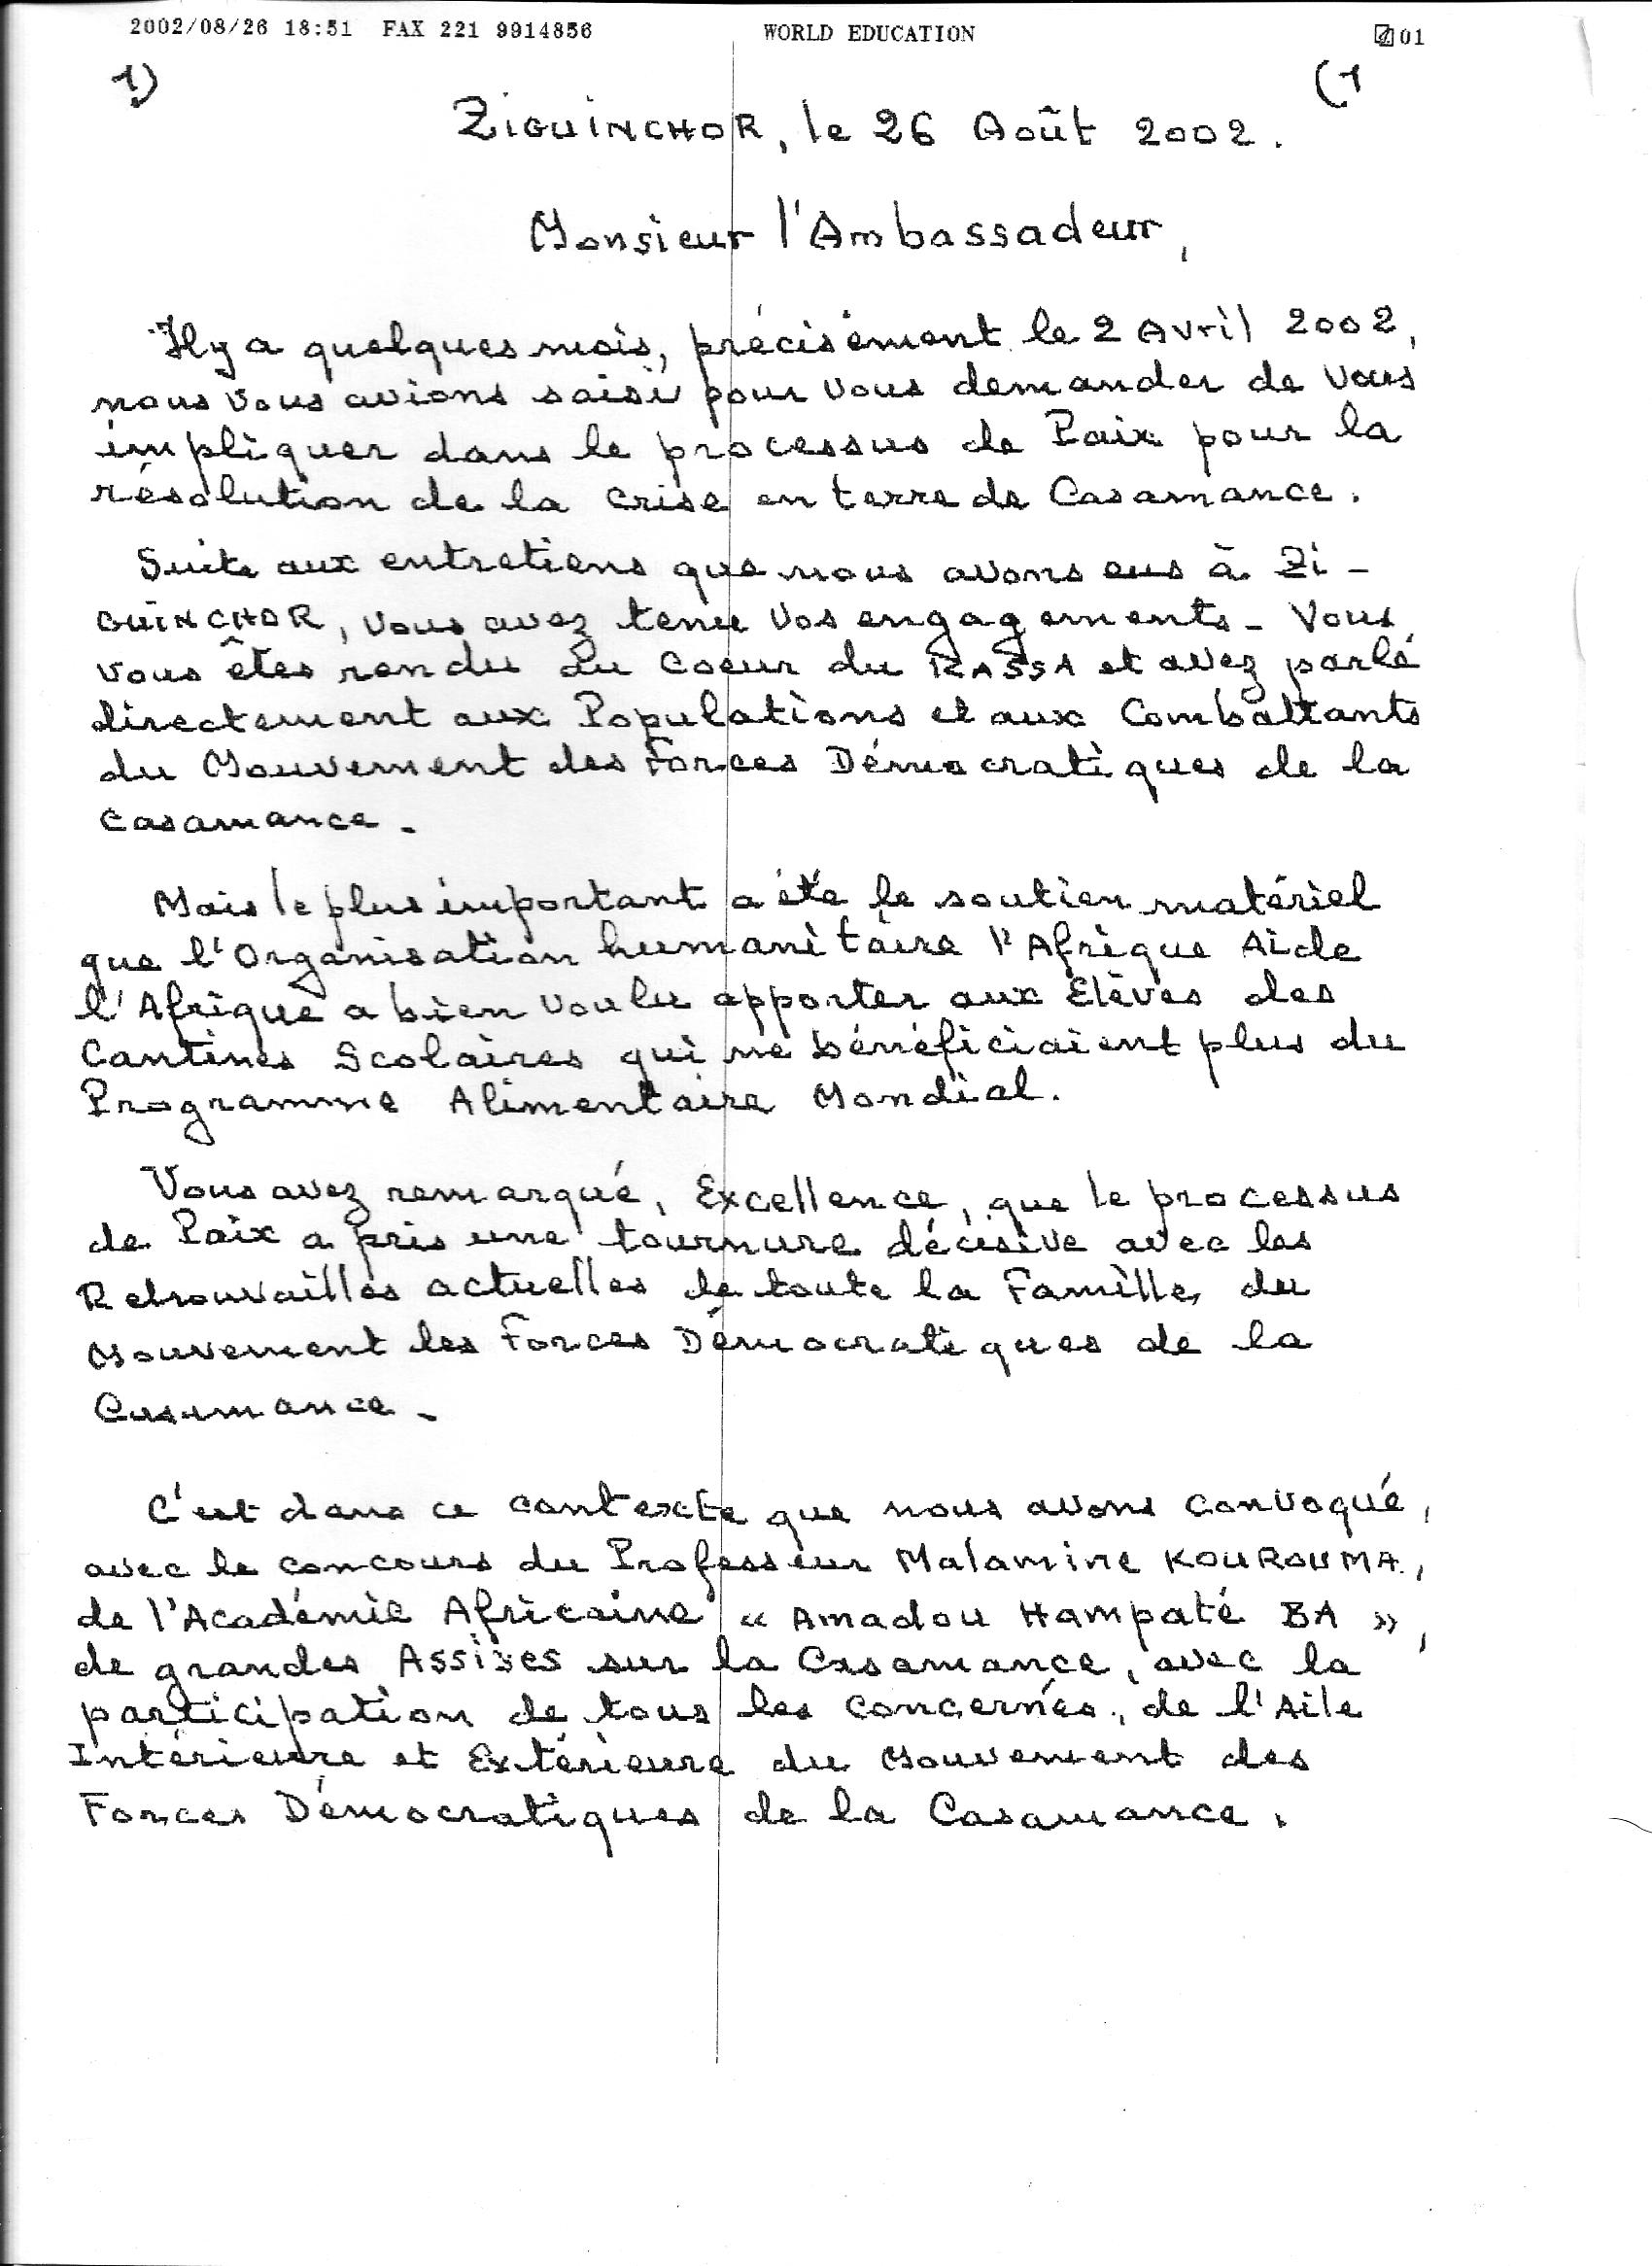 2002/08/26 18:51 FAX 221 9914856 WORLD EDUCATION 01
1) (1
ZIGUINCHOR, le 26 Août 2002.
Monsieur l'Ambassadeur,
Il y a quelques mois, précisément le 2 Avril 2002,
nous vous avions saisi pour vous demander de vous
impliquer dans le processus de Paix pour la
résolution de la crise en terre de Casamance.
Suite aux entretiens que nous avons eus à Zi-
GUINCHOR, vous avez tenu vos engagements - Vous
vous êtes rendu au Coeur du KASSA et avez parlé
directement aux Populations et aux Combattants
du Mouvement des Forces Démocratiques de la
Casamance -
Mais le plus important a été le soutien matériel
que l'Organisation humanitaire l'Afrique Aide
l'Afrique a bien voulu apporter aux Elèves des
Cantines Scolaires qui ne bénéficiaient plus du
Programme Alimentaire Mondial.
Vous avez remarqué, Excellence, que le processus
de Paix a pris une tournure décisive avec les
Retrouvailles actuelles de toute la Famille du
Mouvement les Forces Démocratiques de la
Casamance -
C'est dans ce contexte que nous avons convoqué,
avec le concours du Professeur Malamine KOUROUMA,
de l'Académie Africaine « Amadou Hampaté BA »,
de grandes Assises sur la Casamance, avec la
participation de tous les concernés, de l'Aile
Intérieure et Extérieure du Mouvement des
Forces Démocratiques de la Casamance.